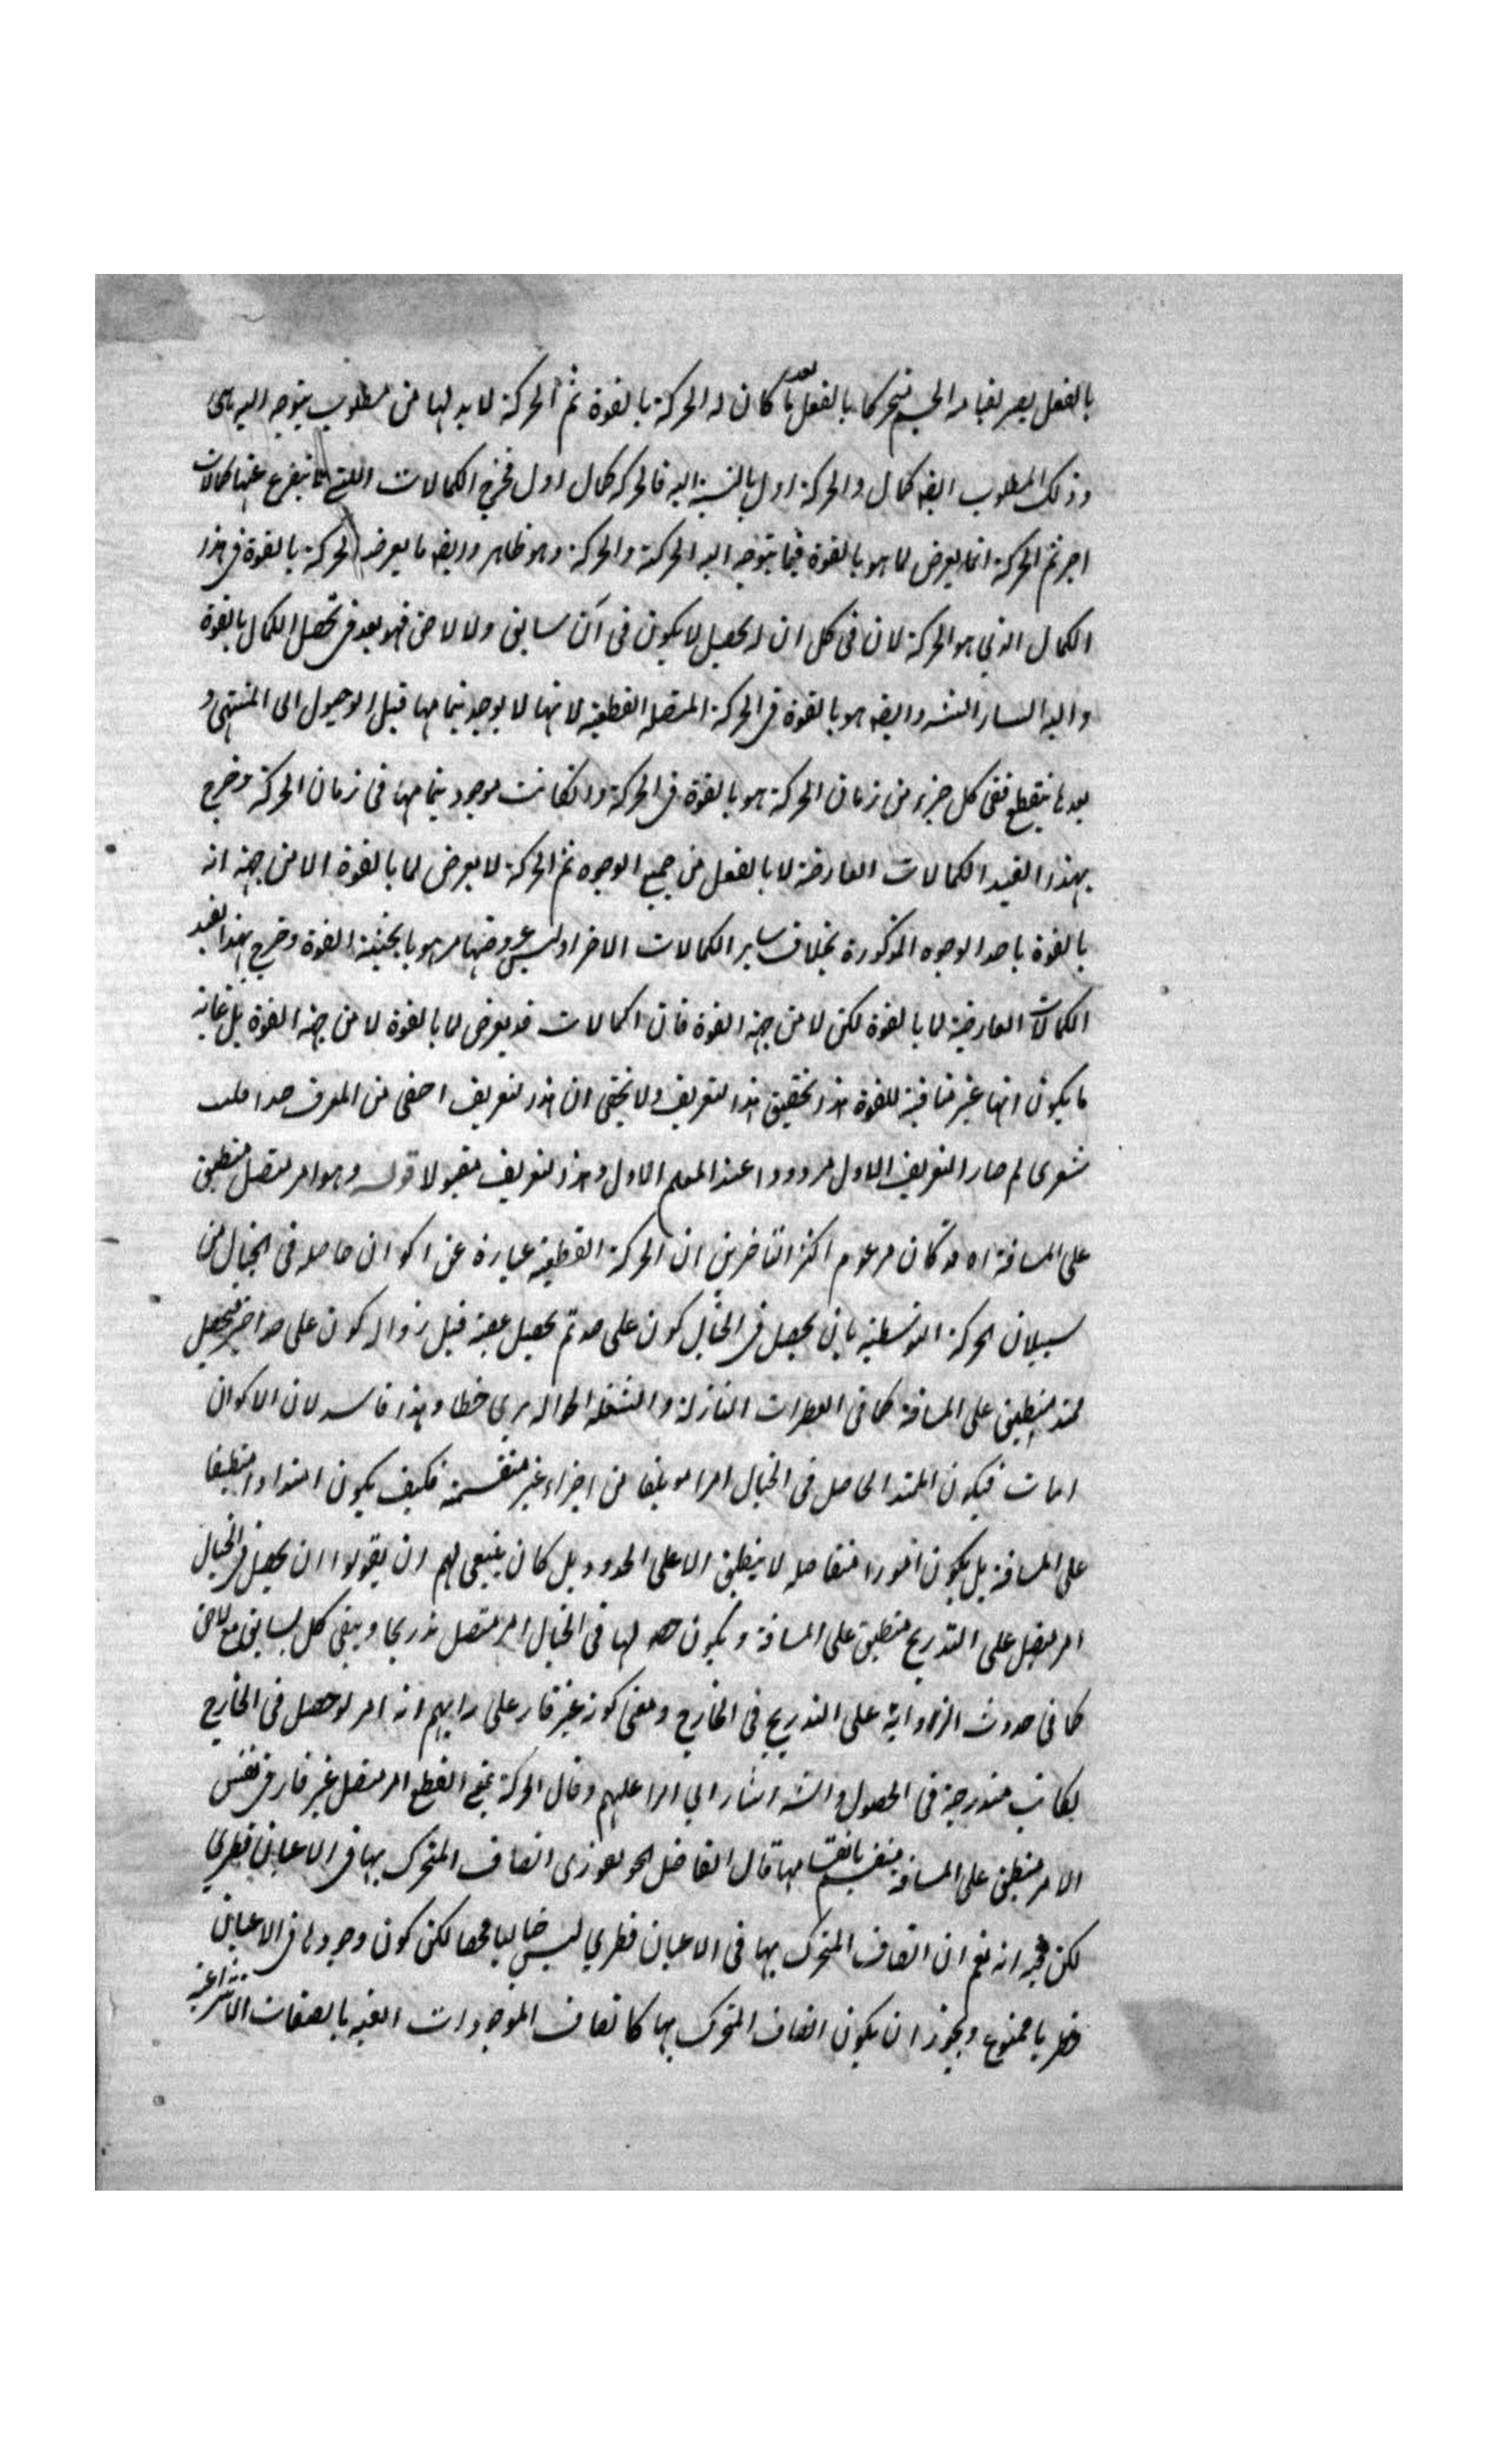 بالفعل يصير بقيامه الجسم متحركا بالفعل بعد ما كان له الحركة بالقوة ثم الحركة لا بد لها من مطلوب يتوجه اليه
وذلك المطلوب ايضه كمال والحركة اول بالنسبة اليه فالحركة كمال اول فخرج الكمالات التي لا يتفرع عنها كمالات
اخر ثم الحركة انما يعرض لما هو بالقوة فيما يتوجه اليه الحركة والحركة وهو ظاهر وايضه ما يعرضه الحركة بالقوة في هذا
الكمال الذي هو الحركة لان في كل ان له يحصل لا يكون في آن سابق ولا لاحق فهو بعد في تحصل الكمال بالقوة
واليه اشار الشه وايضه هو بالقوة في الحركة المتصله القطعية لانها لا يوجد بتمامها قبل الوصول الى المنتهى و
بعده ينقطع ففي كل جزء من زمان الحركة هو بالقوة في الحركة وان كانت موجود بتمامها في زمان الحركة وخرج
بهذا القيد الكمالات العارضة لا بالفعل من جميع الوجوه ثم الحركة لا يعرض لما بالقوة الا من جهة انه
بالقوة باحد الوجوه المذكورة بخلاف ساير الكمالات الاخر اذ ليس عروضها من هو بالحيثية القوة وخرج بهذا القيد
الكمالات العارضة لما بالقوة لكن لا من جهة القوة فان الكمالات قد يعرض لما بالقوة لا من جهة القوة بل غاية
ما يكون انها غير منافية للقوة هذا تحقيق هذا التعريف ولا يخفى ان هذا التعريف اخفى من المعرف جدا فليت
شعرى لم صار التعريف الاول مردودا عند المعلم الاول وهذا التعريف مقبولا قوله وهو امر متصل منطبق
على المسافة اه قد كان مزعوم اكثر المتاخرين ان الحركة القطعية عبارة عن اكوان حاصله في الخيال من
سيلان الحركة التوسطية بان يحصل في الخيال كون على حد ثم يحصل عقبه قبل زواله كون على حد اخر فيحصل
ممتد منطبق على المسافة كما في القطرات النازلة والشعله الجواله يرى خطا وهذا فاسد لان الاكوان
انيات فيكون الممتد الحاصل في الخيال امرا مولفا من اجزاء غير منقسمة فكيف يكون امتدادا منطبقا
على المسافة بل يكون امورا متفاصله لا ينطبق الا على الحدود بل كان ينبغى لهم ان يقولوا ان يحصل في الخيال
امر متصل على التدريج منطبق على المسافة ويكون حصولها في الخيال امر متصل تدريجا ويبقى كل سابق مع لاحق
كما في حدوث الزاوية على التدريج في الخارج ومعنى كونه غير قار على رايهم انه امر لو حصل في الخارج
لكانت متدرجة في الحصول والشه اشار الى الرد عليهم وقال الحركة بمعنى القطع امر متصل غير قار في نفس
الامر منطبق على المسافة منقسم بانقسامها قال الفاضل الخونفورى اتصاف المتحرك بها في الاعيان فطرى
لكن فيه انه نعم ان اتصاف المتحرك بها في الاعيان فطرى ليس خياليا محضا لكن كون وجودها في الاعيان
فطريا ممنوع ويجوز ان يكون اتصاف المتحرك بها كاتصاف الموجودات العينيه بالصفات الانتزاعية